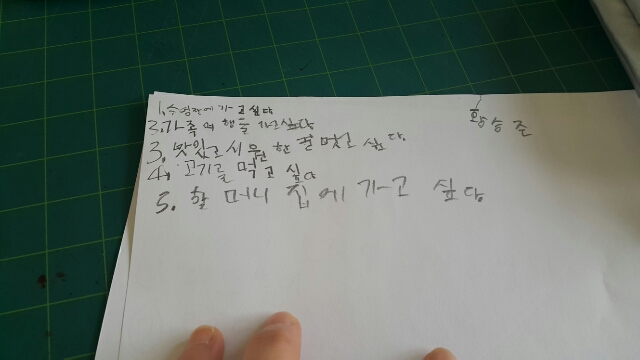 1. 수영장에 가고 싶다
2. 가족 여행을 가고 싶다
3. 맛있고 시원한 먹고 싶다.
4. 고기를 먹고 싶다
5. 할머니 집에 가고 싶다
황승준